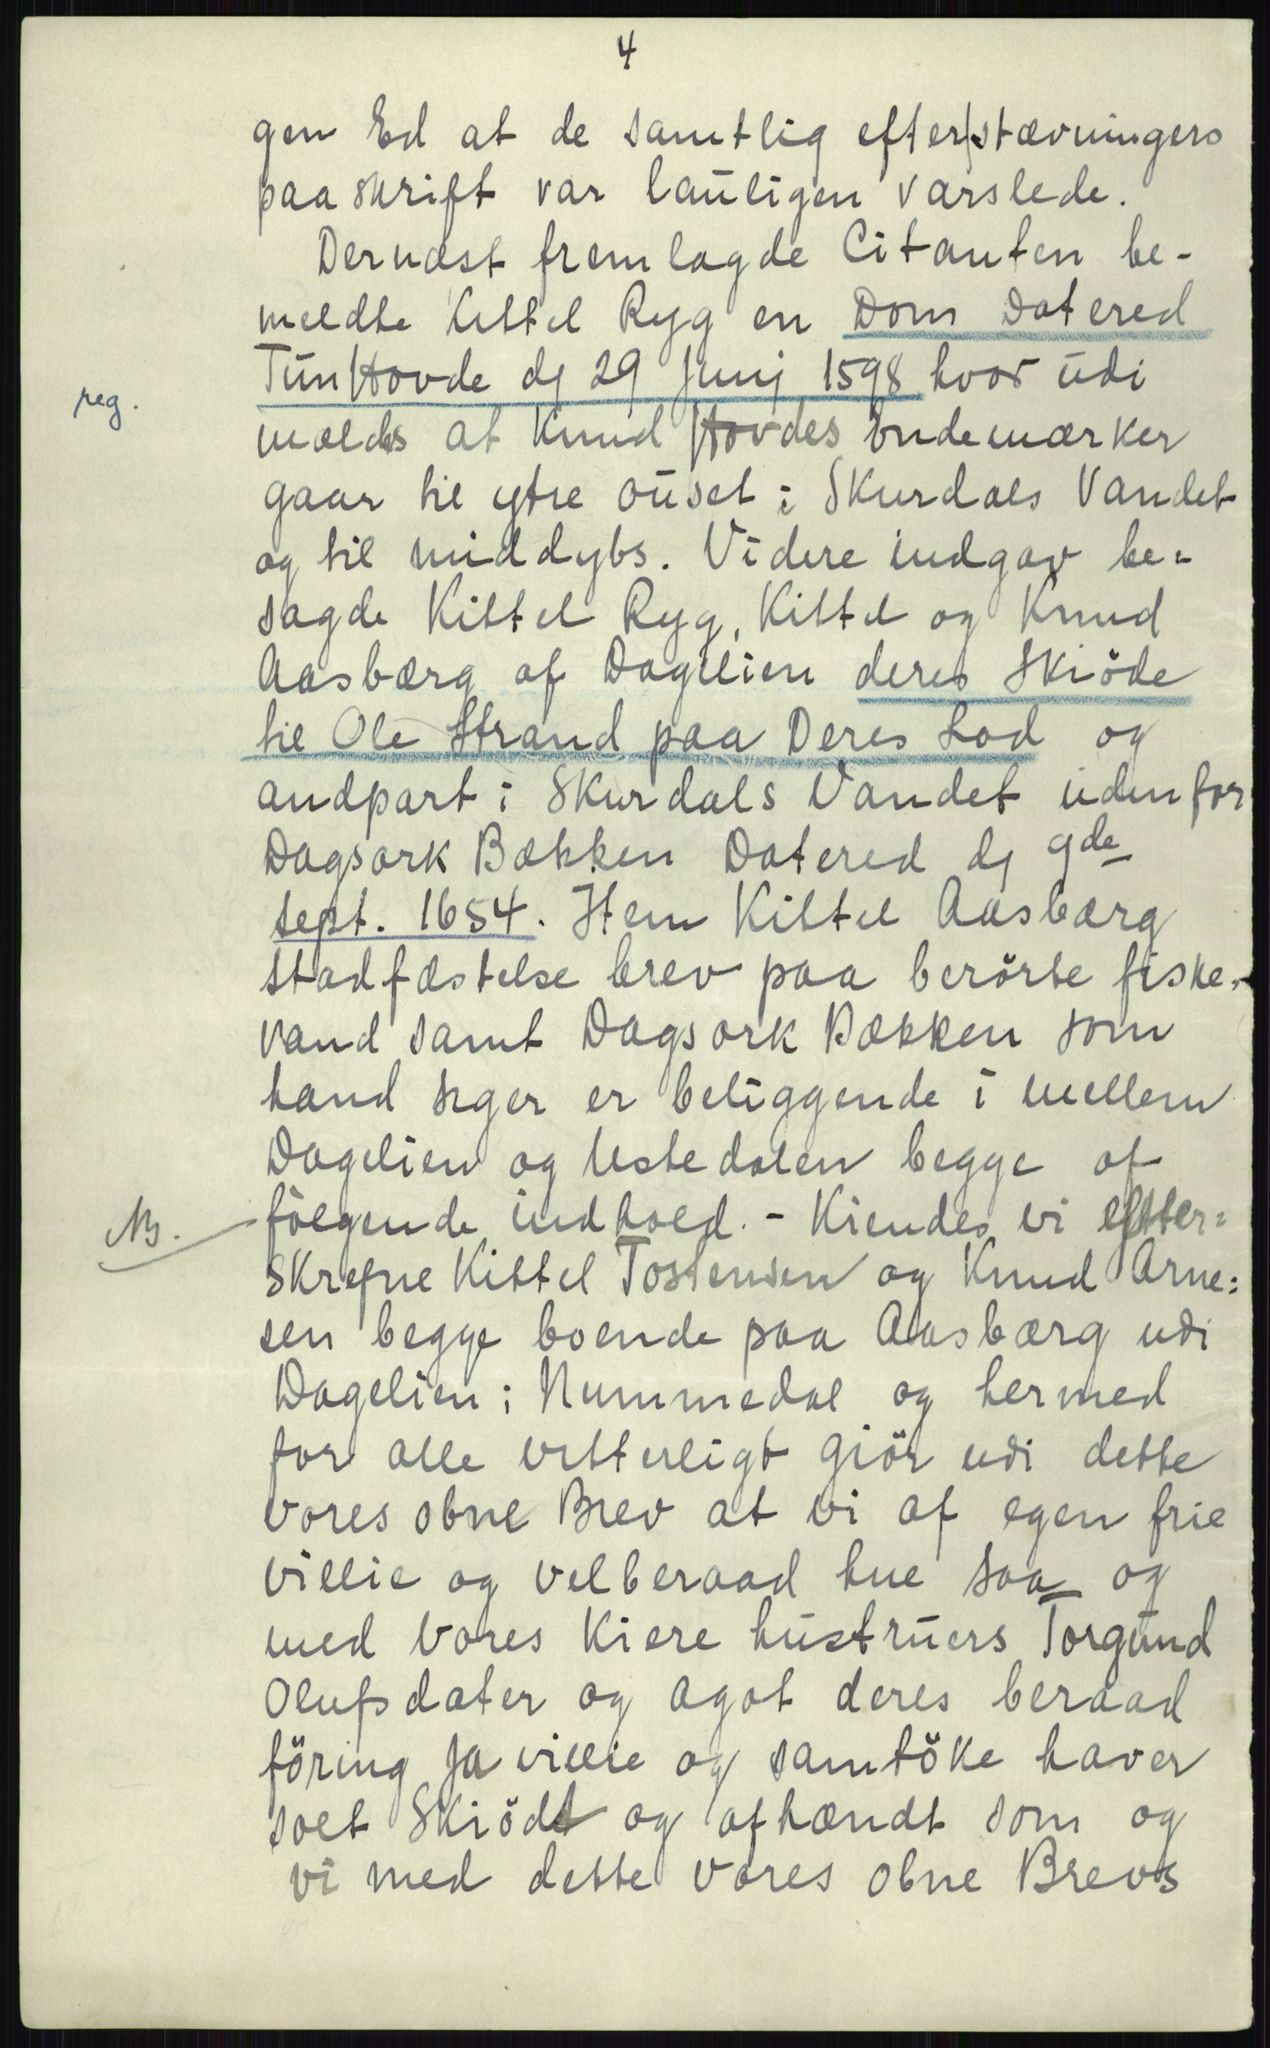 4
gen Ed at de samtlig efter stævningens
paaskrift var lauligen varslede.
Dernæst fremlagde Citanten be-
meldte Kittel Ryg en Dom Datered
Tunhovde dj 29 Junj 1598 hvor udi
reg.
meldes at Knud Hovdes Endemærker
gaar til ytre ouset i Skurdals Vandet
og til middybs. Videre indgav be=
sagde Kittel Ryg, Kittel og Knud
Aasbærg af Dagelien deres Skiöde
til Ole Strand paa Deres Lod og
andpart i Skurdals Vandet udenfor
Dagsork Bækken Datered dj 9de
sept. 1654. Item Kittel Aasbærg
stadfæstelse brev paa berörte fiske-
vand samt Dagsork Bækken som
hand siger er beliggende i mellem
Dagelien og Ustedalen begge af
NB.
fölgende indhold. - Kiendes vi efter=
skrefne Kittel Tostensen og Knud Arne=
sen begge boende paa Aasbærg udi
Dagelien i Nummedal og hermed
for alle vitterligt giör udi dette
vores obne Brev at vi af egen frie
villie og velberaad hue saa og
med vores Kiere hustruers Torgund
Olufsdater og Agot deres beraad
föring Ja villie og samtöke haver
solt Skiödt og afhændt som og
vi med dette vores obne Brevs